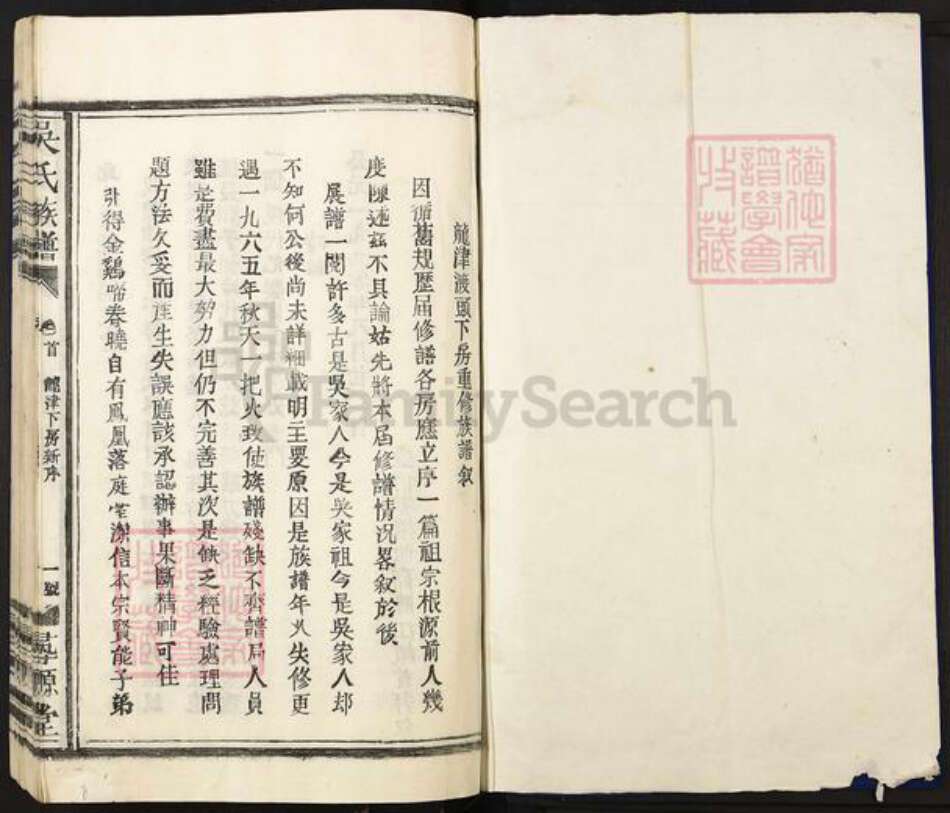 猶他家
譜學會
收藏
龍津渡頭下房重修族譜叙
因循舊規歷屆修譜各房應立序一篇祖宗根源前人幾
度陳述茲不具論姑先將本屆修譜情況畧叙於後
展譜一閱許多古是吳家人今是吳家祖今是吳家人却
不知何公後尚未詳細載明主要原因是族譜年久失修更
遇一九六五年秋天一把火致使族譜殘缺不齊譜局人員
雖是費盡最大努力但仍不完善其次是缺乏經驗處理問
題方法欠妥而產生失誤應該承認辦事果斷精神可佳
引得金鷄啼春曉自有鳳凰落庭深信本宗賢能子弟
吳氏族譜
卷首
龍津下房新序
一號
尋源堂
FamilySearch